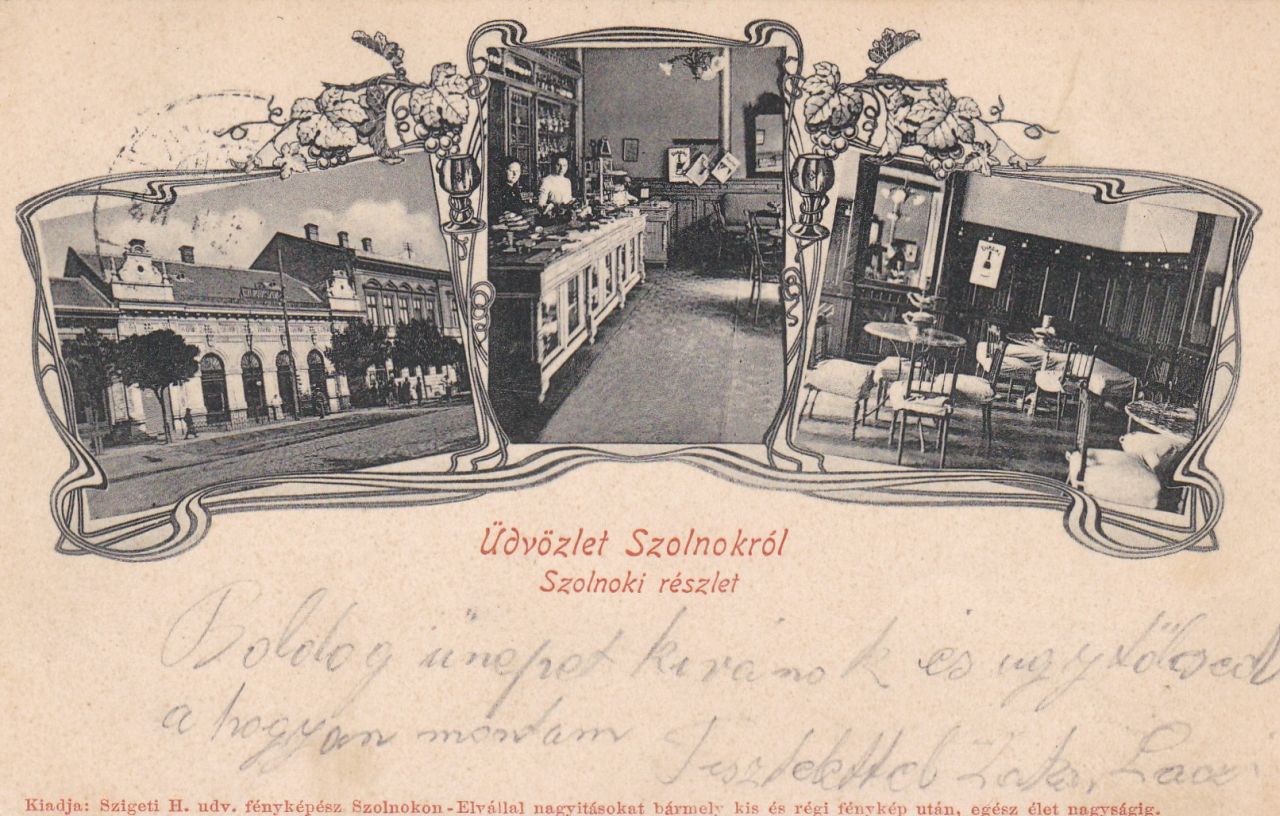 Üdvözlet Szolnokról
Szolnoki részlet
Boldog ünepet kivánok és ugy
a hogyan montam
Laci
Kiadja: Szigeti H. udv. fényképész Szolnokon - Elvállal nagyitásokat bármely kis és régi fénykép után, egész élet nagyságig.